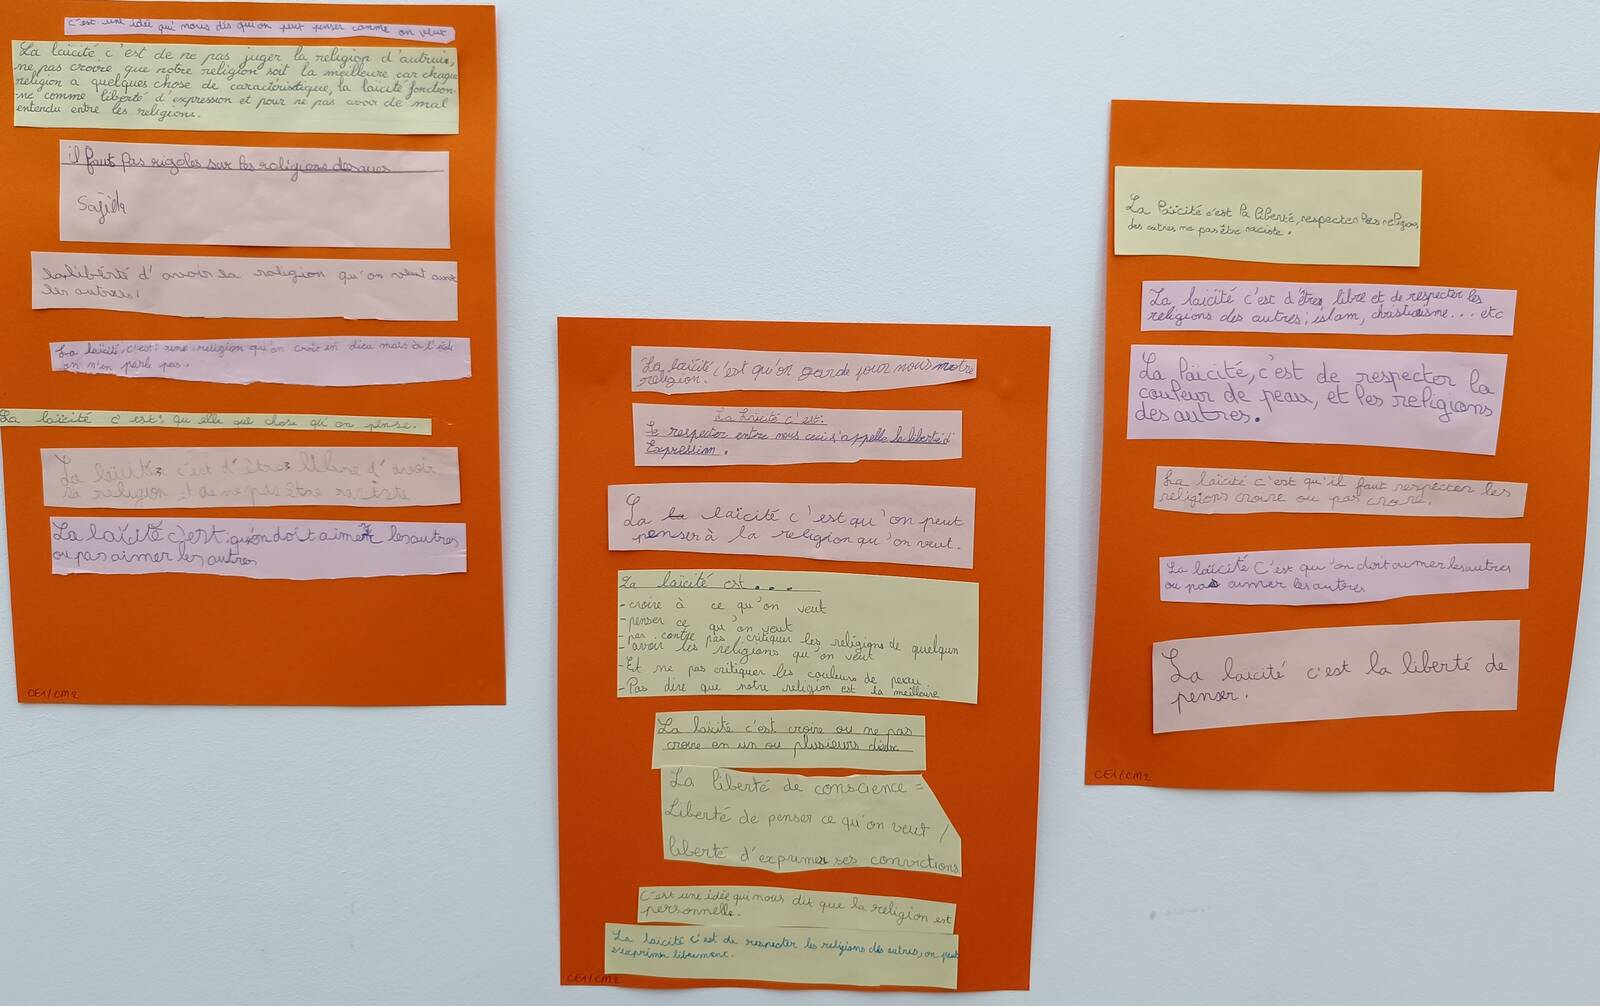 c'est une idée qui nous dis qu'on peut penser comme on veut
La laïcité, c'est de ne pas juger la religion d'autruie,
ne pas croire que notre religion soit la meilleure car chaque
religion a quelques chose de caractéristique, la laïcité fonction-
ne comme liberté d'expression et pour ne pas avoir de mal
entendu entre les religions.
il faut pas rigoler sur les religions
la liberté d'avoir la religion qu'on veut
les autres!
La laïcité, c'est: une religion qu'on croit en dieu mais à
on n'en parle pas.
La laïcité c'est: qu elle que chose qu'on pense.
La laïcité c'est d'être libre d'avoir
sa religion et de ne pas être raciste
La laïcité c'est: qu'on doit aimer les autres
ou pas aimer les autres
CE1/CM2
La laïcité c'est qu'on garde pour nous notre
religion.
La Laïcité c'est:
Le respecter entre nous ceci s'appelle la liberté d'
Expression.
La la laïcité c'est qu'on peut
penser à la religion qu'on veut.
La laïcité est...
-croire à ce qu'on veut
-penser ce qu'on veut
-par contre pas critiquer les religions de quelqun
-avoir les religions qu'on veut
-Et ne pas critiquer les couleurs de peau
-Pas dire que notre religion est la meilleure
La laïcité c'est croire ou ne pas
croire en un ou plusieurs dieux
La liberté de conscience =
Liberté de penser ce qu'on veut /
liberté d'exprimer ses convictions
C'est une idée qui nous dit que la religion est
personnelle.
La laïcité c'est de respecter les religions des autres, on peut
s'exprimer librement.
CE1/CM2
La laïcité c'est la liberté, respecter les religions
des autres ne pas être raciste.
La laïcité c'est d'être libre et de respecter les
religions des autres; islam, christiaisme... etc
La laïcité, c'est de respecter la
couleur de peau, et les religions
des autres.
La laïcité c'est qu'il faut respecter les
religions croire ou pas croire.
La laïcité C'est qu'on doit aimer les autres
ou pas aimer les autres
La laïcité c'est la liberté de
penser.
CE1/CM2